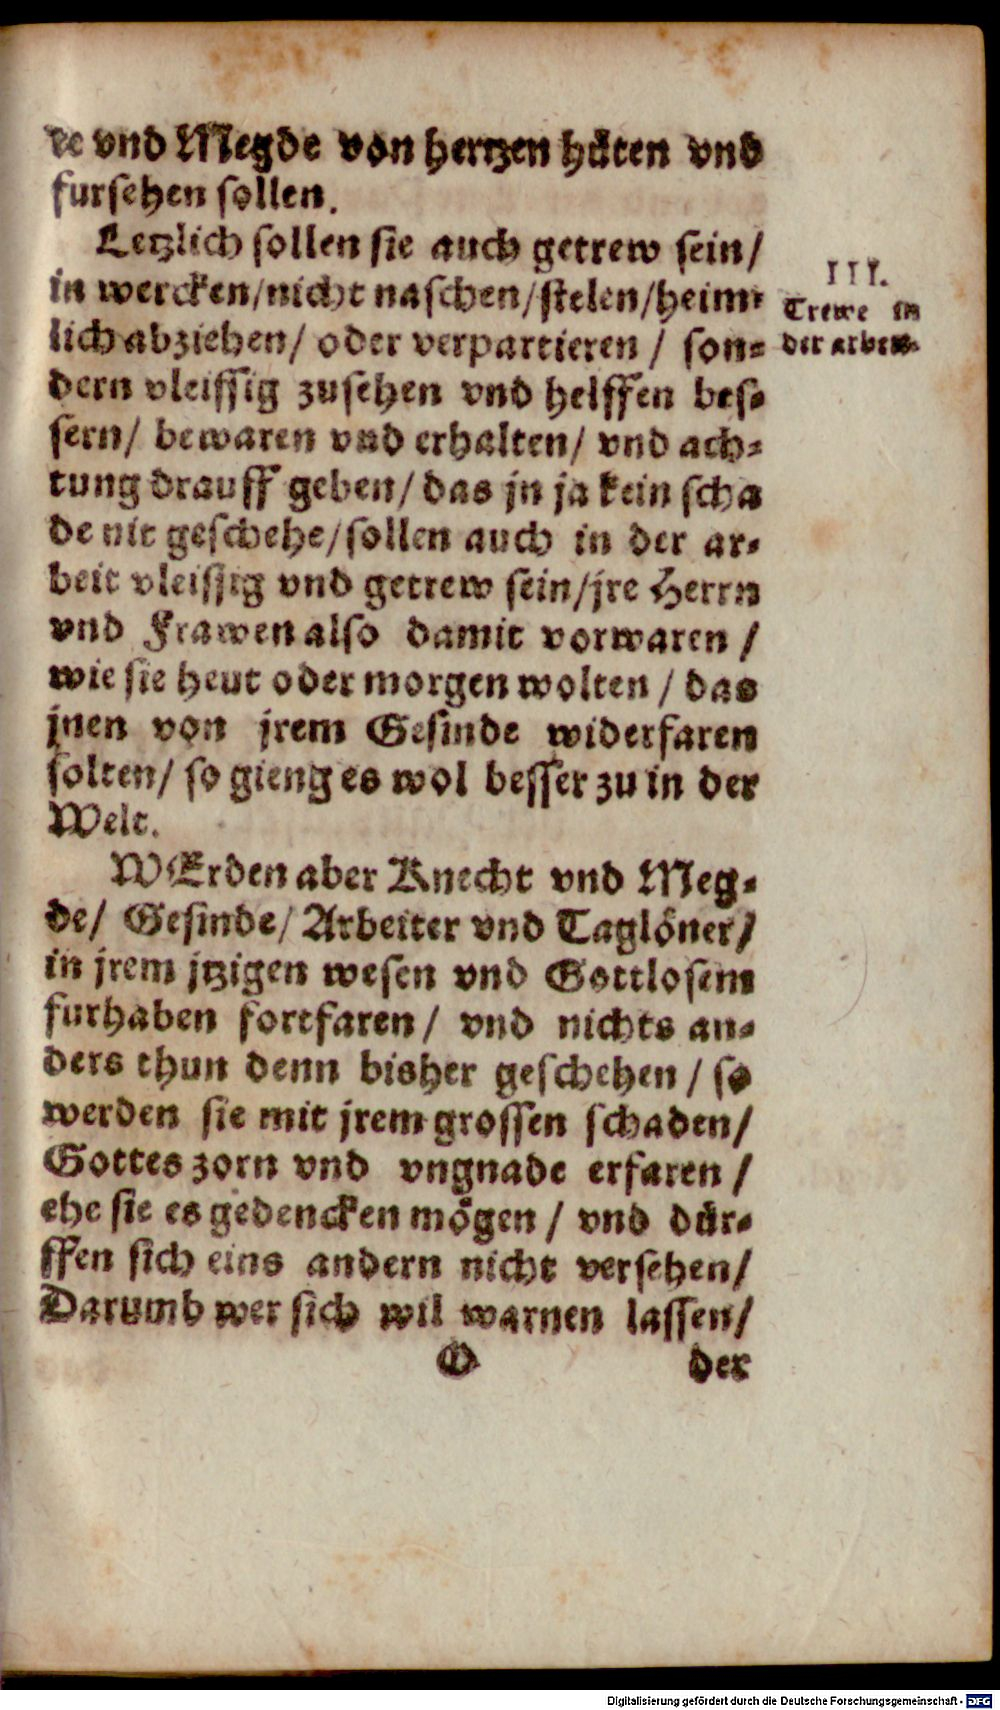 de vnd Megde von hertzen hüten vnd
fursehen sollen.
Letzlich sollen sie auch getrew sein/
in wercken/nicht naschen/stelen/heim-
lich abziehen/ oder verpartieren / son-
dern vleissig zusehen vnd helffen bes-
sern/ bewaren vnd erhalten/ vnd ach-
tung drauff geben/ das jn ja kein scha
de nit geschehe/sollen auch in der ar-
beit vleissig vnd getrew sein/jre Herrn
vnd Frawen also damit vorwaren /
wie sie heut oder morgen wolten / das
jnen von jrem Gesinde widerfaren
solten/ so gieng es wol besser zu in der
Welt.
WErden aber Knecht vnd Meg-
de/ Gesinde/ Arbeiter vnd Taglöner/
in jrem jtzigen wesen vnd Gottlosem
furhaben fortfaren/ vnd nichts an-
ders thun denn bisher geschehen / so
werden sie mit jrem grossen schaden/
Gottes zorn vnd vngnade erfaren /
ehe sie es gedencken mögen / vnd dür-
ffen sich eins andern nicht versehen/
Darumb wer sich wil warnen lassen/
O der
III.
Trewe in
der arbeit.
Digitalisierung gefördert durch die Deutsche Forschungsgemeinschaft - DFG